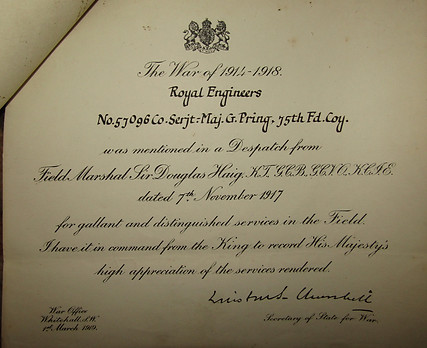 The War of 1914-1918.
Royal Engineers
No. 57096 Co. Serjt:-Maj. G. Pring. 75th Fd. Coy.
was mentioned in a Despatch from
Field Marshal Sir Douglas Haig, K.T., G.C.B., G.C.V.O., K.C.I.E.
dated 7th November 1917
for gallant and distinguished services in the Field.
I have it in command from the King to record His Majesty's
high appreciation of the services rendered.
Winston S. Churchill
War Office
Whitehall, S.W.
1st March 1919.
Secretary of State for War.